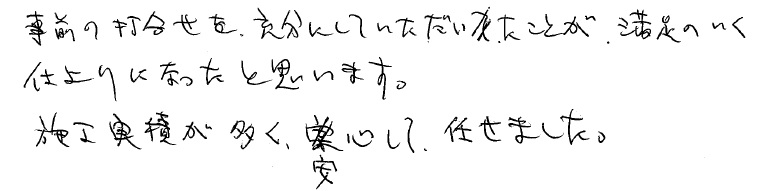 事前の打合せを、充分にしていただいたことが、満足のいく
仕上りになったと思います。
施工実積が多く、安心して、任せました。